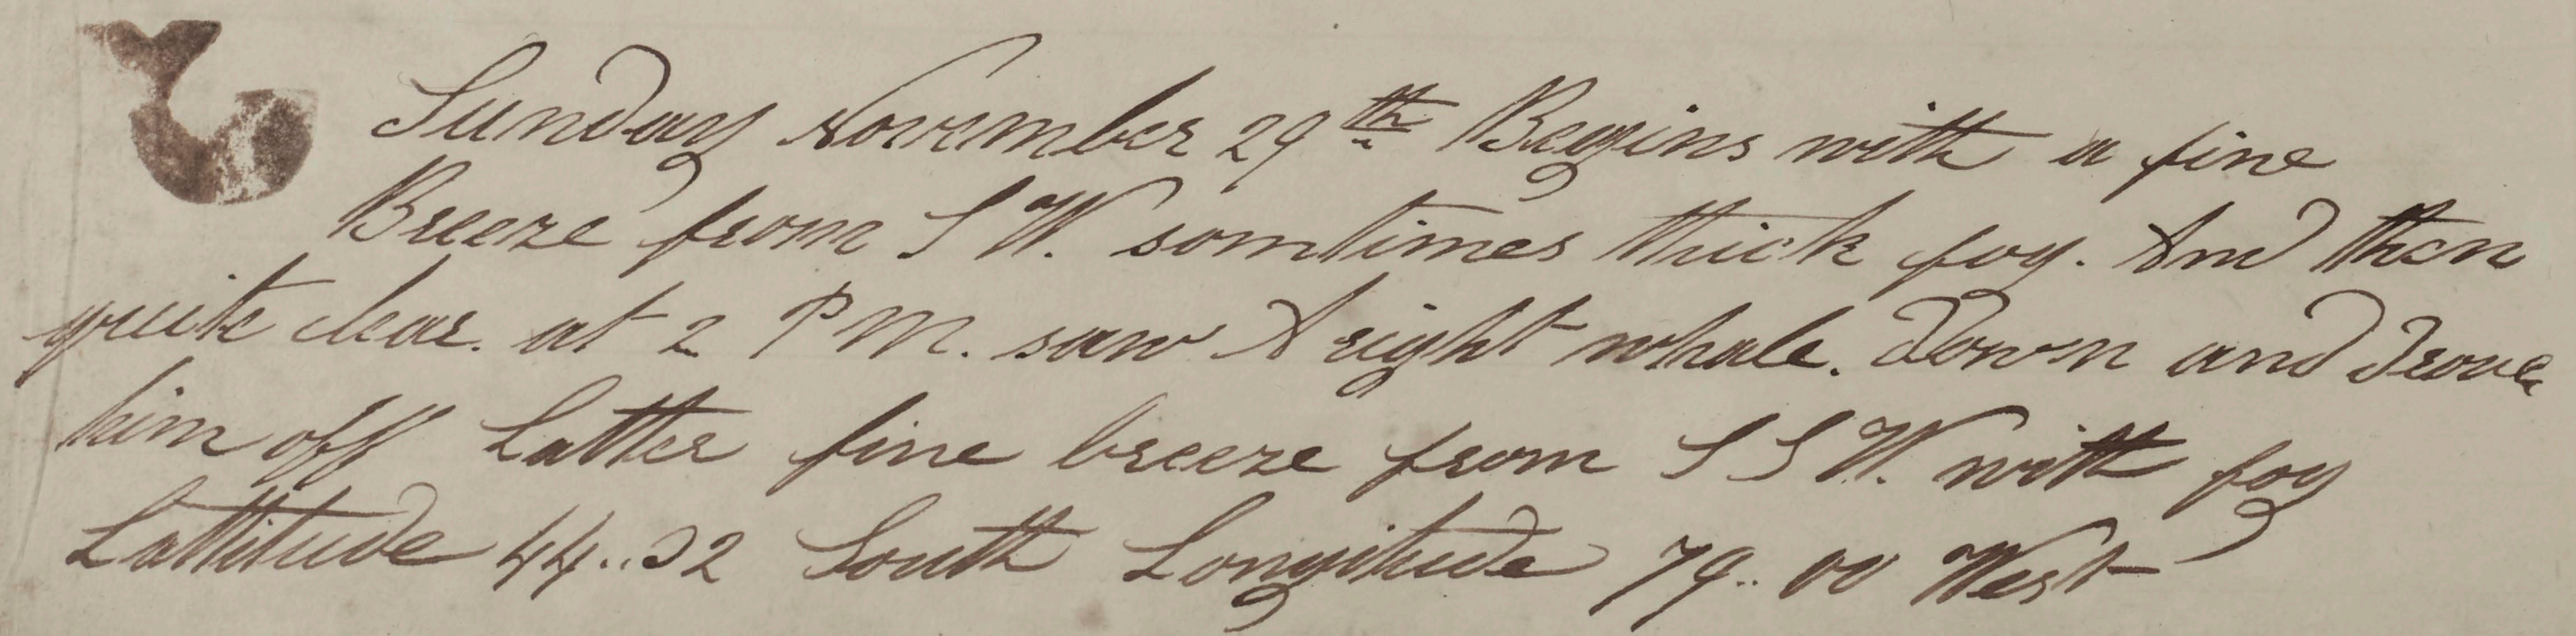 Sunday November 29th Begins with a fine
Breeze from S W. somtimes thick fog. And then
quite clear. at 2 P M. saw A right whale. Down and drove
him off Latter fine breeze from S S W. with fog
Lattitude 44..32 South Longitude 79..00 West